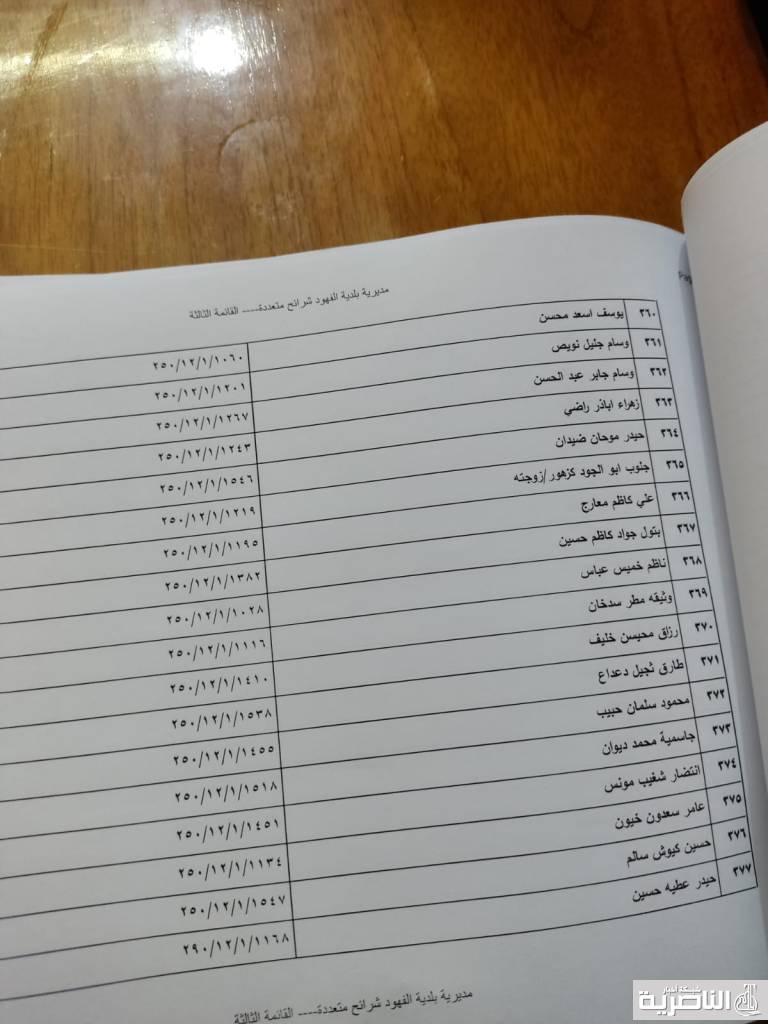 Pag
مديرية بلدية الفهود شرائح متعددة---- القائمة الثالثة
٣٦٠ يوسف اسعد محسن ٢٥٠/١٢/١/١٠٦٠
٣٦١ وسام جليل نويص ٢٥٠/١٢/١/١٢٠١
٣٦٢ وسام جابر عبد الحسن ٢٥٠/١٢/١/١٢٦٧
٣٦٣ زهراء اباذر راضي ٢٥٠/١٢/١/١٢٤٣
٣٦٤ حيدر موحان ضيدان ٢٥٠/١٢/١/١٥٤٦
٣٦٥ جنوب ابو الجود كزهور/زوجته ٢٥٠/١٢/١/١٢١٩
٣٦٦ علي كاظم معارج ٢٥٠/١٢/١/١١٩٥
٣٦٧ بتول جواد كاظم حسين ٢٥٠/١٢/١/١٣٨٢
٣٦٨ ناظم خميس عباس ٢٥٠/١٢/١/١٠٢٨
٣٦٩ وثيقه مطر سدخان ٢٥٠/١٢/١/١١١٦
٣٧٠ رزاق محيسن خليف ٢٥٠/١٢/١/١٤١٠
٣٧١ طارق ثجيل دعداع ٢٥٠/١٢/١/١٥٣٨
٣٧٢ محمود سلمان حبيب ٢٥٠/١٢/١/١٤٥٥
٣٧٣ جاسمية محمد ديوان ٢٥٠/١٢/١/١٥١٨
٣٧٤ انتضار شغيب مونس ٢٥٠/١٢/١/١٤٥١
٣٧٥ عامر سعدون خيون ٢٥٠/١٢/١/١١٣٤
٣٧٦ حسين كيوش سالم ٢٥٠/١٢/١/١٥٤٧
٣٧٧ حيدر عطيه حسين ٢٩٠/١٢/١/١١٦٨
مديرية بلدية الفهود شرائح متعددة---- القائمة الثالثة
شبكة أخبار
الناصرية